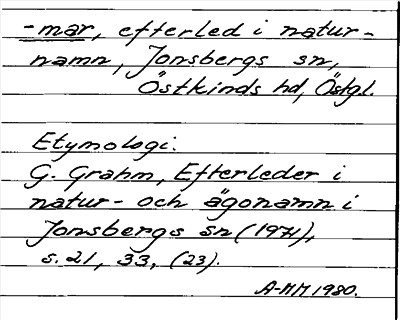 -mar, efterled i natur-
namn, Jonsbergs sn,
Östkinds hd, Östgl.
Etymologi:
G. Grahm, Efterleder i
natur- och ägonamn i
Jonsbergs sn (1971),
s. 21, 33, (23).
A-MM 1980.